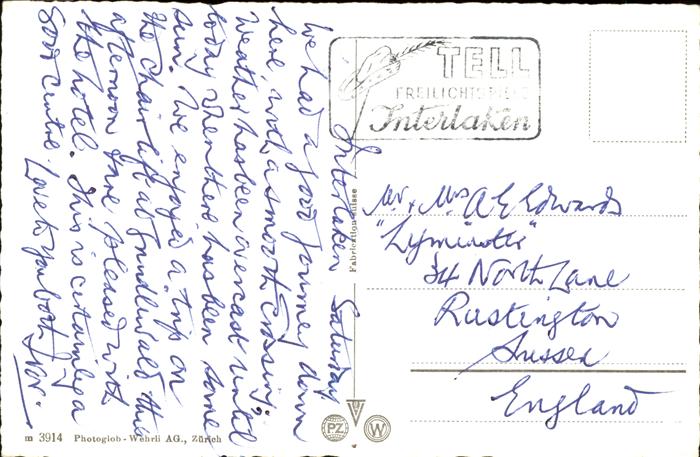 Interlaken Saturday
We had a good journey down
here with a smooth crossing;
weather has been overcast until
today when there has been some
sun. We enjoyed a trip on
the chair lift at Grindelwald this
afternoon & are pleased with
the hotel. This is certainly a
good centre. Love to you both
TELL
FREILICHTSPIELE
Interlaken
Fabrication Suisse
Mr & Mrs A E Edwards
"Lyminster"
34 North Lane
Rustington
Sussex
England
m 3914 Photoglob-Wehrli AG., Zürich
PZ
W